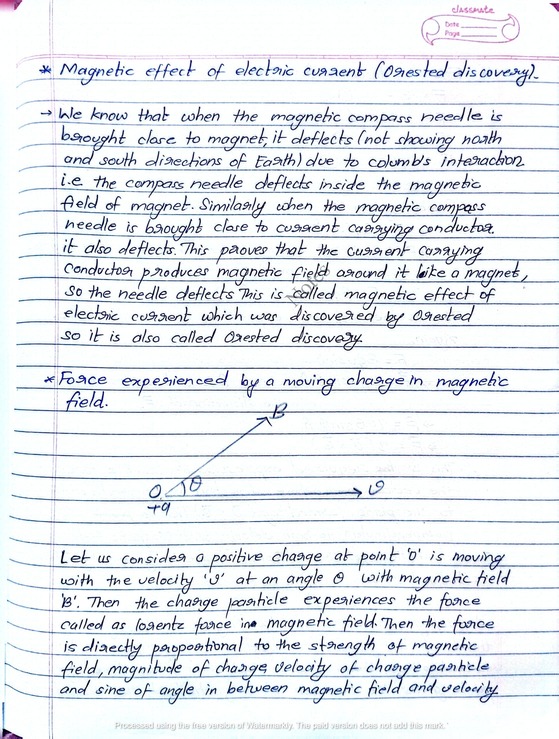 classmate
Date
Page
* Magnetic effect of electric current (Orested discovery).
→ We know that when the magnetic compass needle is
brought close to magnet, it deflects (not showing north
and south directions of Earth) due to columb's interaction
i.e the compass needle deflects inside the magnetic
field of magnet. Similarly when the magnetic compass
needle is brought close to current carrying conductor.
it also deflects. This proves that the current carrying
conductor produces magnetic field around it like a magnet,
so the needle deflects This is called magnetic effect of
electric current which was discovered by Orested
so it is also called Orested discovery.
* Force experienced by a moving charge in magnetic
field.
B
O θ v
+q
Let us consider a positive charge at point 'O' is moving
with the velocity 'v' at an angle θ with magnetic field
'B'. Then the charge particle experiences the force
called as lorentz force in magnetic field. Then the force
is directly propostional to the strength of magnetic
field, magnitude of charge, velocity of charge particle
and sine of angle in between magnetic field and velocity
Processed using the free version of Watermarkly. The paid version does not add this mark.